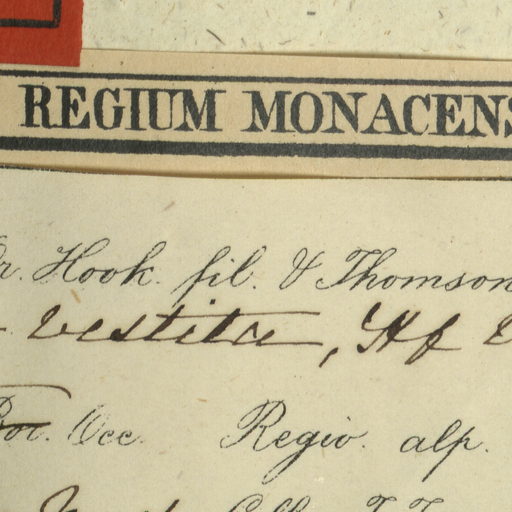 REGIUM MONACENS
Hook. fil. & Thomson
vestita, Hf
Bor. Occ. Regio. alp.